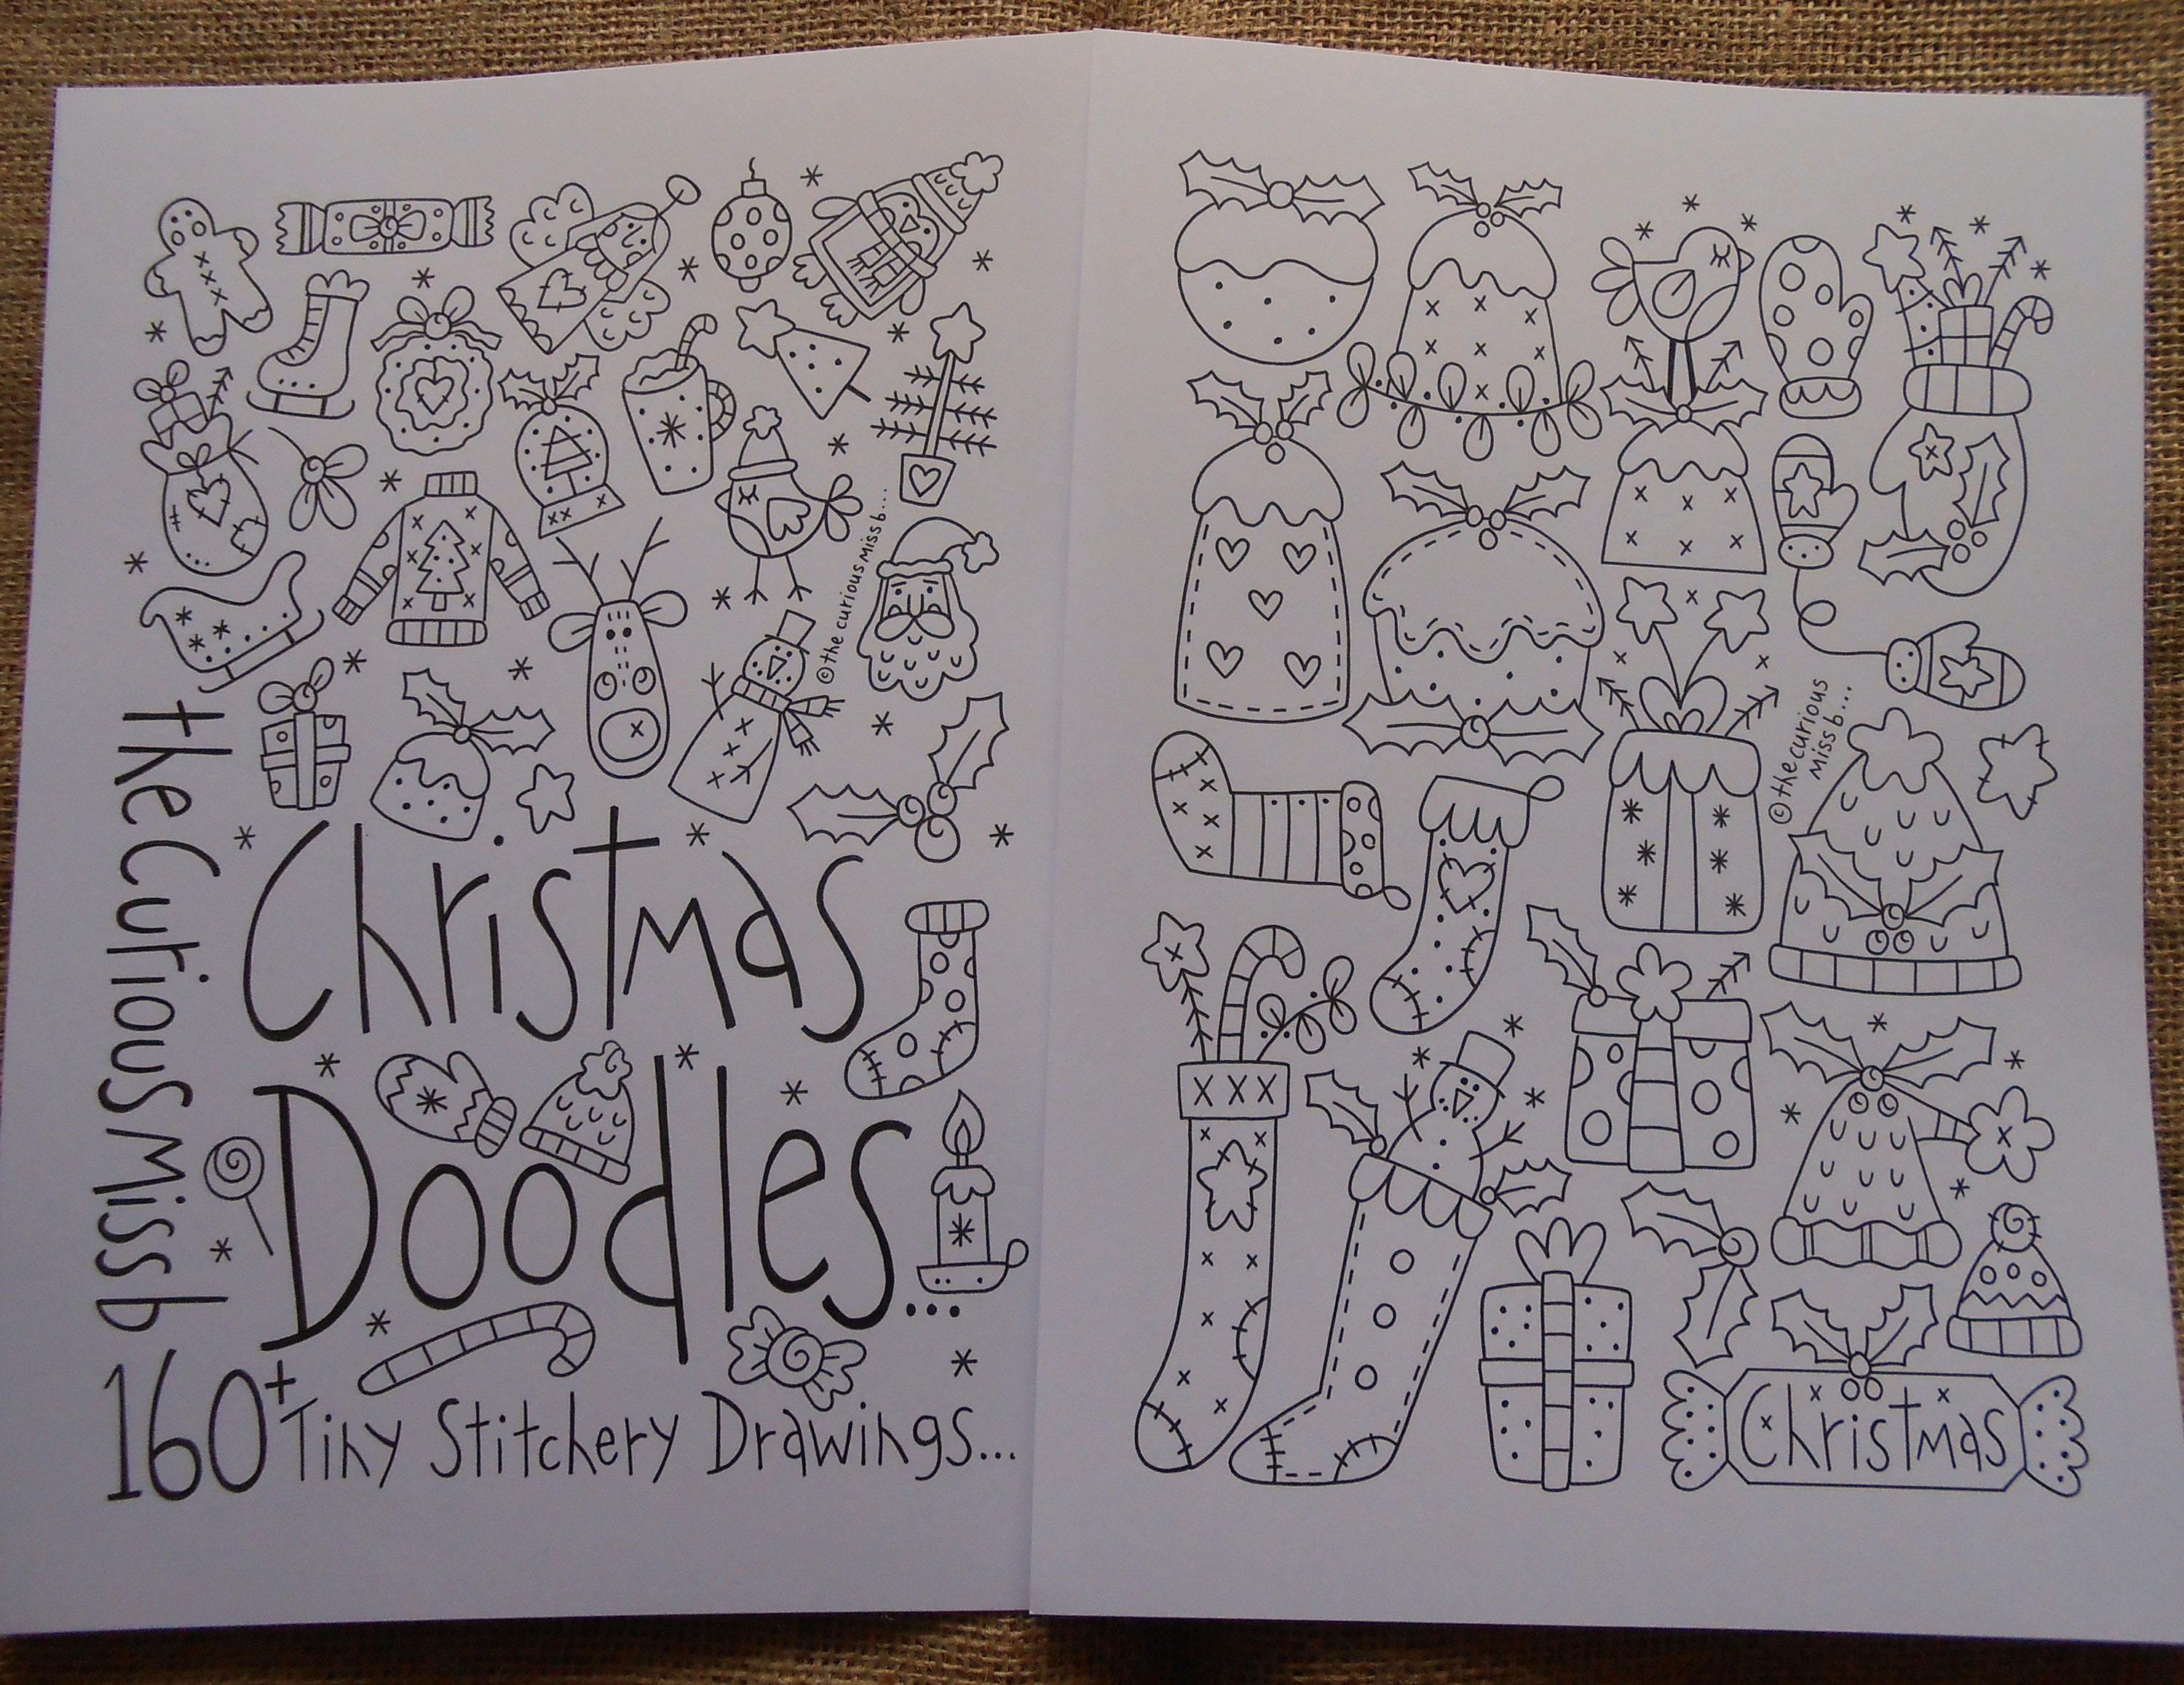 © the curious Miss b...
the Curious Miss b
Christmas
Doodles...
160+ Tiny Stitchery Drawings...
© the curious
Miss b...
Christmas